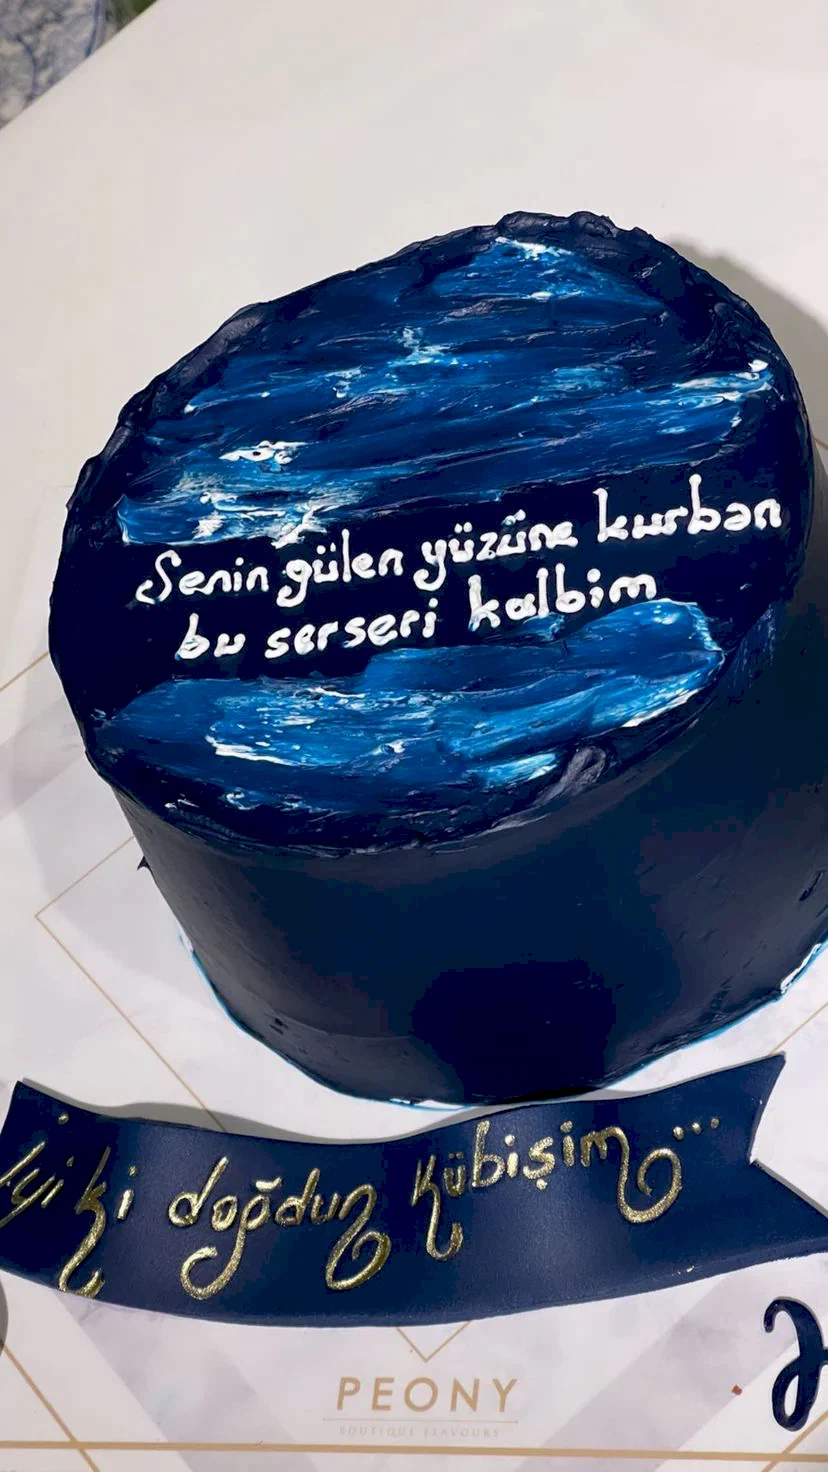 Senin gülen yüzüne kurban
bu serseri kalbim
iyi ki doğdun Kübişim...
PEONY
BOUTIQUE FLAVOURS